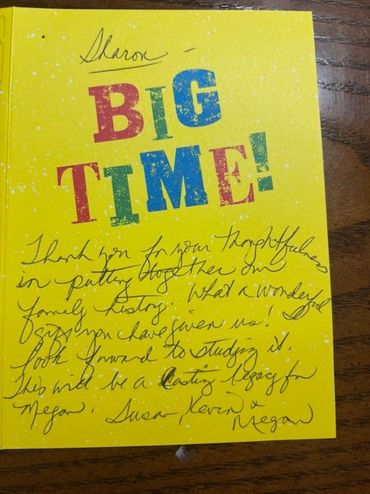 Sharon -
BIG
TIME!
Thank you for your thoughtfulness
in putting together our
family history. What a wonderful
gift you have given us! I
look forward to studying it.
This will be a lasting legacy for
Megan. Susan, Kevin &
Megan